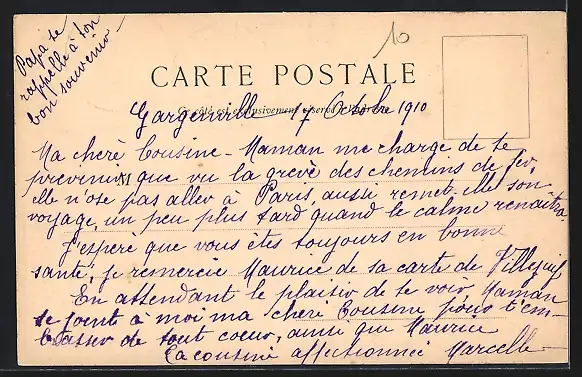 Papa se
rappelle à ton
bon souvenir
10
CARTE POSTALE
Ce côté est exclusivement réservé à l'adresse
Gargenville 17 Octobre 1910
Ma chère Cousine - Maman me charge de te
prévenir que vu la grève des chemins de fer,
elle n'ose pas aller à Paris, aussi remet-elle son
voyage, un peu plus tard quand le calme renaîtra.
J'espère que vous êtes toujours en bonne
santé, je remercie Maurice de sa carte de Villequier
En attendant le plaisir de te voir, Maman
se joint à moi ma chère Cousine pour t'em-
brasser de tout coeur, ainsi que Maurice
Ta cousine affectionnée Marcelle